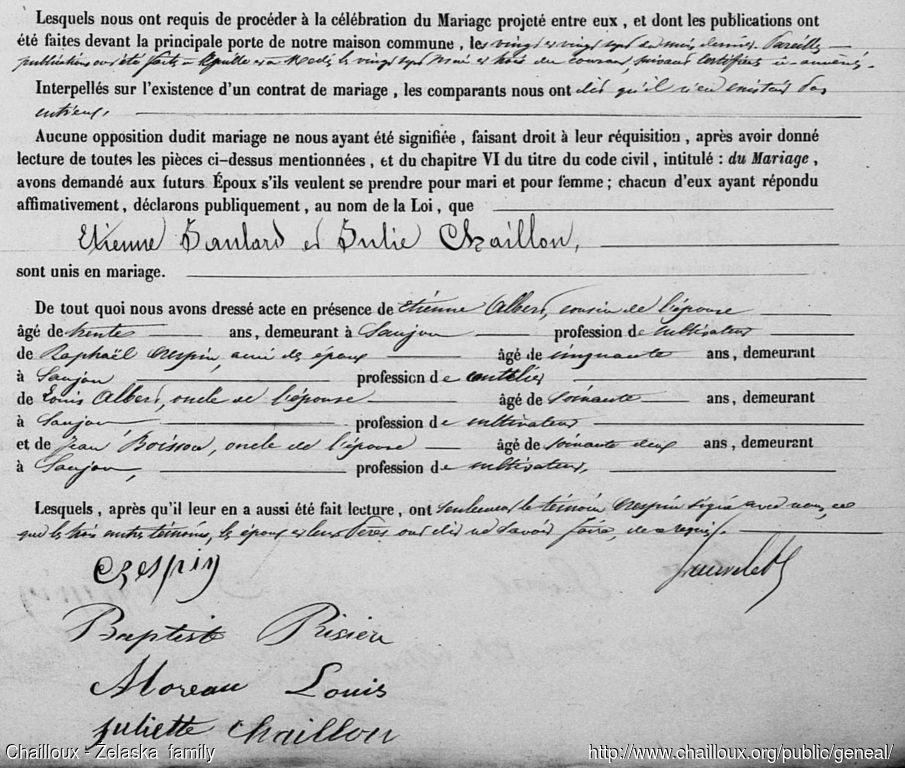 Lesquels nous ont requis de procéder à la célébration du Mariage projeté entre eux, et dont les publications ont
été faites devant la principale porte de notre maison commune, les vingt et vingt sept du mois dernier. Pareilles
publications ont été faites à les vingt sept Mai et trois du courant, suivant certificats ci-annexés.
Interpellés sur l'existence d'un contrat de mariage, les comparants nous ont dit qu'il n'en existait pas
entr'eux.
Aucune opposition dudit mariage ne nous ayant été signifiée, faisant droit à leur réquisition, après avoir donné
lecture de toutes les pièces ci-dessus mentionnées, et du chapitre VI du titre du code civil, intitulé : du Mariage,
avons demandé aux futurs Époux s'ils veulent se prendre pour mari et pour femme ; chacun d'eux ayant répondu
affirmativement, déclarons publiquement, au nom de la Loi, que
Etienne et Julie Chaillon,
sont unis en mariage.
De tout quoi nous avons dressé acte en présence de Etienne Albert, cousin de l'épouse
âgé de trente ans, demeurant à Saujon profession de cultivateur
de Raphaël Crespin, ami des époux âgé de cinquante ans, demeurant
à Saujon profession de coutelier
de Louis Albert, oncle de l'épouse âgé de soixante ans, demeurant
à Saujon profession de cultivateur
et de Jean Boisson, oncle de l'épouse âgé de soixante deux ans, demeurant
à Saujon, profession de cultivateur.
Lesquels, après qu'il leur en a aussi été fait lecture, ont seulement le témoin Crespin signé avec nous, ce
que les trois autres témoins, les époux et leurs Pères ont dit ne savoir faire, de ce requis.
Crespin
Baptiste
Moreau Louis
Juliette Chaillon
Chailloux - Zelaska family http://www.chailloux.org/public/geneal/